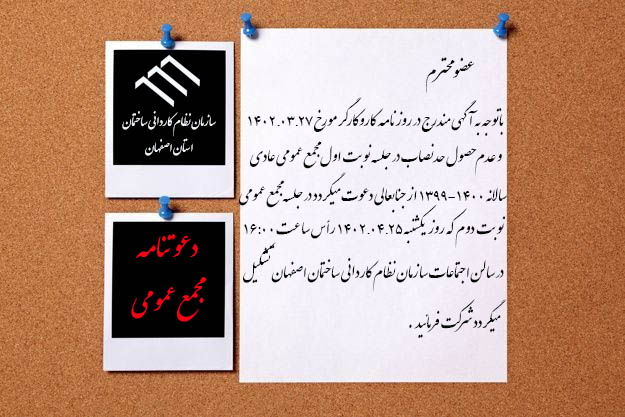 عضو محترم
باتوجه به آگهی مندرج در روزنامه کار و کارگر مورخ ۱۴۰۲.۰۳.۲۷
و عدم حصول حد نصاب در جلسه نوبت اول مجمع عمومی عادی
سالانه ۱۴۰۰-۱۳۹۹ از جنابعالی دعوت میگردد در جلسه مجمع عمومی
نوبت دوم که روز یکشنبه ۱۴۰۲.۰۴.۲۵ رأس ساعت ۱۶:۰۰
در سالن اجتماعات سازمان نظام کاردانی ساختمان اصفهان تشکیل
میگردد شرکت فرمائید .
سازمان نظام کاردانی ساختمان
استان اصفهان
دعوتنامه
مجمع عمومی